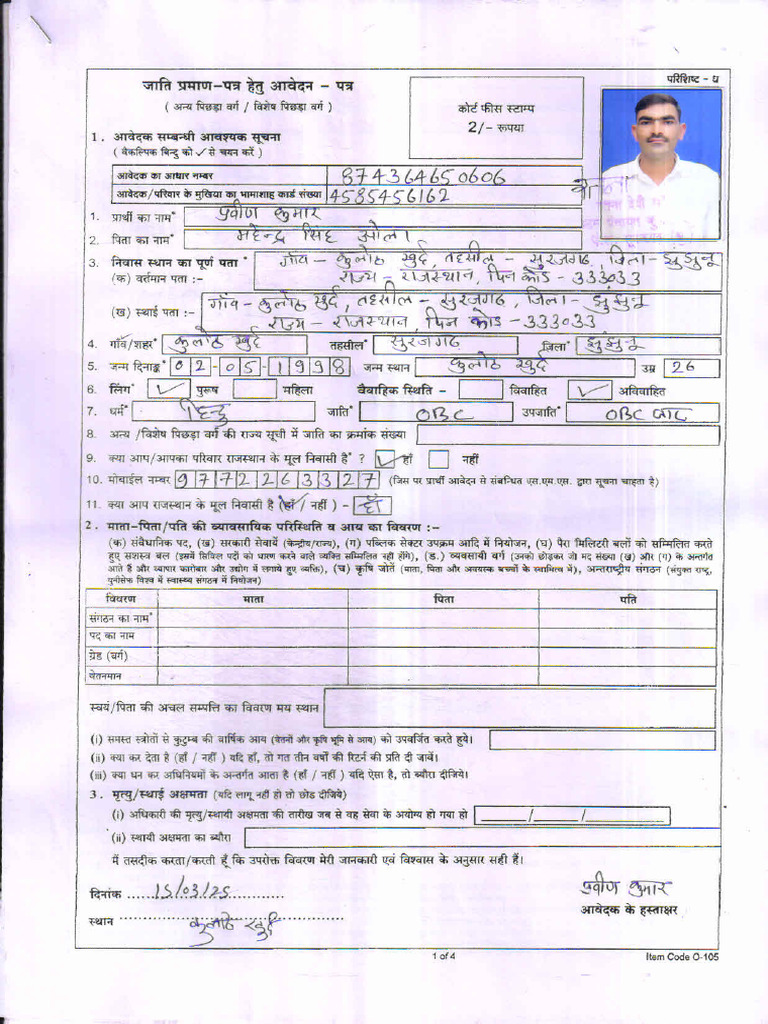 परिशिष्ट - ध
जाति प्रमाण-पत्र हेतु आवेदन - पत्र
( अन्य पिछड़ा वर्ग / विशेष पिछड़ा वर्ग )
कोर्ट फीस स्टाम्प
2/- रूपया
1. आवेदक सम्बन्धी आवश्यक सूचना
( वैकल्पिक बिन्दु को ✓ से चयन करें )
आवेदक का आधार नम्बर 874364650606
आवेदक/परिवार के मुखिया का भामाशाह कार्ड संख्या 4585456162
1. प्रार्थी का नाम* प्रवीण कुमार
2. पिता का नाम* महेन्द्र सिंह ओला
3. निवास स्थान का पूर्ण पता* गाँव - कुलोठ खुर्द, तहसील - सुरजगढ, जिला - झुंझुनू
(क) वर्तमान पता :- राज्य - राजस्थान, पिन कोड - 333033
(ख) स्थाई पता :- गाँव - कुलोठ खुर्द, तहसील - सुरजगढ, जिला - झुंझुनू
राज्य - राजस्थान, पिन कोड - 333033
4. गाँव/शहर* कुलोठ खुर्द तहसील* सुरजगढ जिला* झुंझुनू
5. जन्म दिनाङ्क* 02-05-1998 जन्म स्थान कुलोठ खुर्द उम्र 26
6. लिंग* ✓ पुरूष महिला वैवाहिक स्थिति - विवाहित ✓ अविवाहित
7. धर्म* हिन्दु जाति* OBC उपजाति* OBC जाट
8. अन्य /विशेष पिछड़ा वर्ग की राज्य सूची में जाति का क्रमांक संख्या
9. क्या आप/आपका परिवार राजस्थान के मूल निवासी है* ? ✓ हाँ नहीं
10. मोबाईल नम्बर 9772263327 (जिस पर प्रार्थी आवेदन से संबन्धित एस.एम.एस. द्वारा सूचना चाहता है)
11. क्या आप राजस्थान के मूल निवासी है (हाँ / नहीं ) - हाँ
2. माता-पिता/पति की व्यावसायिक परिस्थिति व आय का विवरण :-
(क) संवैधानिक पद, (ख) सरकारी सेवायें (केन्द्रीय/राज्य), (ग) पब्लिक सेक्टर उपक्रम आदि में नियोजन, (घ) पैरा मिलिटरी बलों को सम्मिलित करते
हुए सशस्त्र बल (इसमें सिविल पदों को धारण करने वाले व्यक्ति सम्मिलित नही होंगे), (ड.) व्यवसायी वर्ग (उनको छोड़कर जो मद संख्या (ख) और (ग) के अन्तर्गत
आते हैं और व्यापार कारोबार और उद्योग में लगाये हुए व्यक्ति), (च) कृषि जोतें (माता, पिता और अवयस्क बच्चों के स्वामित्व में), अन्तराष्ट्रीय संगठन (संयुक्त राष्ट्र,
युनीसेफ विश्व में स्वास्थ्य संगठन में नियोजन)
विवरण माता पिता पति
संगठन का नाम*
पद का नाम
ग्रेड (वर्ग)
वेतनमान
स्वयं/पिता की अचल सम्पत्ति का विवरण मय स्थान
(i) समस्त स्त्रोतों से कुटुम्ब की वार्षिक आय (वेतनों और कृषि भूमि से आय) को उपवर्जित करते हुये।
(ii) क्या कर देता है (हाँ / नहीं ) यदि हाँ, तो गत तीन वर्षो की रिटर्न की प्रति दी जावें।
(iii) क्या धन कर अधिनियमों के अन्तर्गत आता है (हाँ / नहीं ) यदि ऐसा है, तो ब्यौरा दीजिये।
3. मृत्यु/स्थाई अक्षमता (यदि लागू नहीं हो तो छोड दीजिये)
(i) अधिकारी की मृत्यु/स्थायी अक्षमता की तारीख जब से वह सेवा के अयोग्य हो गया हो ____/____/____
(ii) स्थायी अक्षमता का ब्यौरा
मैं तसदीक करता/करती हूँ कि उपरोक्त विवरण मेरी जानकारी एवं विश्वास के अनुसार सही हैं।
दिनांक 15/03/25 प्रवीण कुमार
आवेदक के हस्ताक्षर
स्थान कुलोठ खुर्द
1 of 4
Item Code O-105